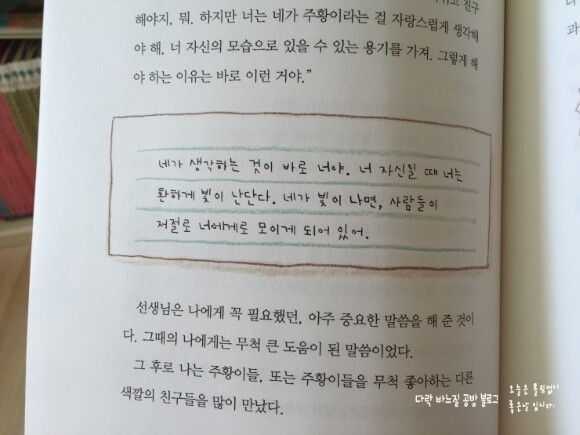 친구
해야지, 뭐. 하지만 너는 네가 주황이라는 걸 자랑스럽게 생각해
야 해. 너 자신의 모습으로 있을 수 있는 용기를 가져. 그렇게 해
야 하는 이유는 바로 이런 거야.”
네가 생각하는 것이 바로 너야. 너 자신일 때 너는
환하게 빛이 난단다. 네가 빛이 나면, 사람들이
저절로 너에게로 모이게 되어 있어.
선생님은 나에게 꼭 필요했던, 아주 중요한 말씀을 해 준 것이
다. 그때의 나에게는 무척 큰 도움이 된 말씀이었다.
그 후로 나는 주황이들, 또는 주황이들을 무척 좋아하는 다른
색깔의 친구들을 많이 만났다.
다락 바느질 공방 블로그
오늘은 틀림없이
좋은날 입니다.